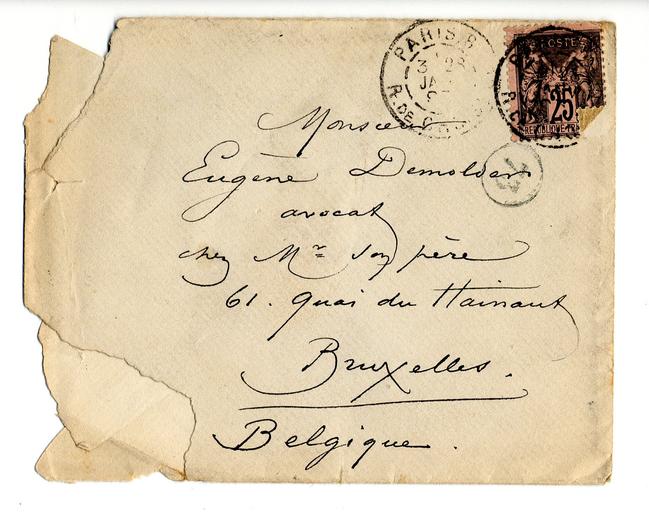 PARIS 6
3 28
JA
R. DE
POSTES
25
Monsieur
Eugène Demolder
avocat
chez Mr son père
61. Quai du Hainaut
Bruxelles.
Belgique.